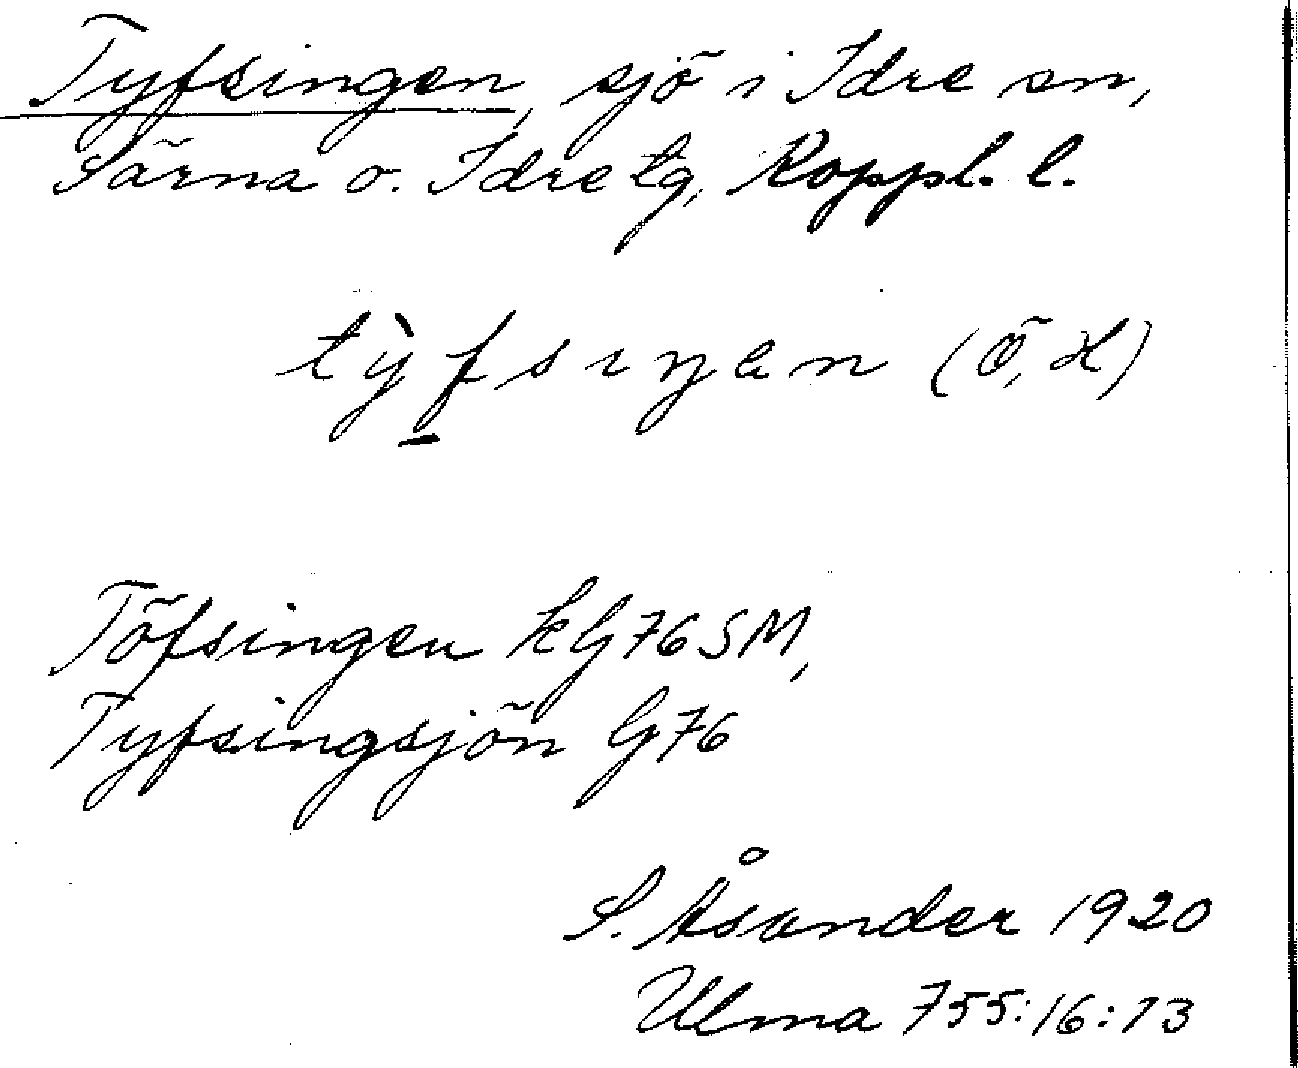 Tyfsingen, sjö i Idre sn,
Särna o. Idre tg, Koppl. l.
tỳfsıŋan (Ö, X)
Töfsingen kG76SM,
Tyfsingsjön G76
S. Åsander 1920
Ulma 755:16:13